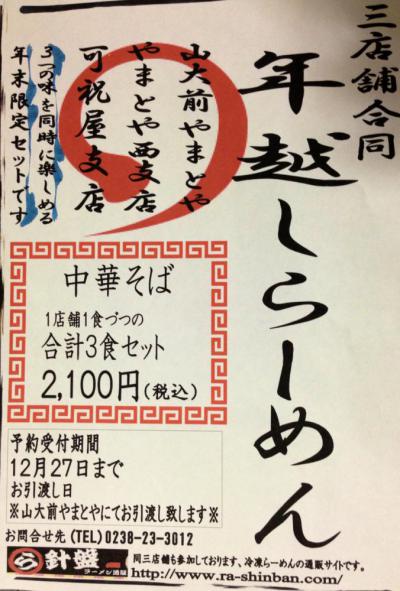 三店舗合同
年越しらーめん
山大前やまとや
やまとや西支店
可祝屋支店
3つの味を同時に楽しめる
年末限定セットです
中華そば
1店舗1食づつの
合計3食セット
2,100円(税込)
予約受付期間
12月27日まで
お引渡し日
※山大前やまとやにてお引渡し致します※
お問合せ先 (TEL)0238-23-3012
ら 針盤 ラーメン通販
同三店舗も参加しております、冷凍らーめんの通販サイトです。
http://www.ra-shinban.com/